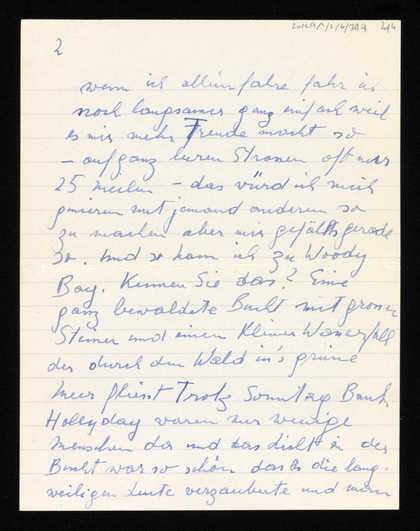 2
wenn ich allein fahre fahr ich
noch langsamer ganz einfach weil
es mir mehr Freude macht so
– auf ganz leeren Strassen oft nur
25 meilen – das würd ich mich
genieren mit jemand anderen so
zu machen aber mir gefällts gerade
so. Und so kam ich zu Woody
Bay. Kennen Sie das? Eine
ganz bewaldete Bucht mit grossen
Steinen und einen kleinen Wasserfall
der durch den Wald in's grüne
Meer fliesst Trotz Sonntag Bank
Hollyday waren nur wenige
Menschen da und das Licht in der
Bucht war so schön das es die lang-
weiligen Leute verzauberte und man